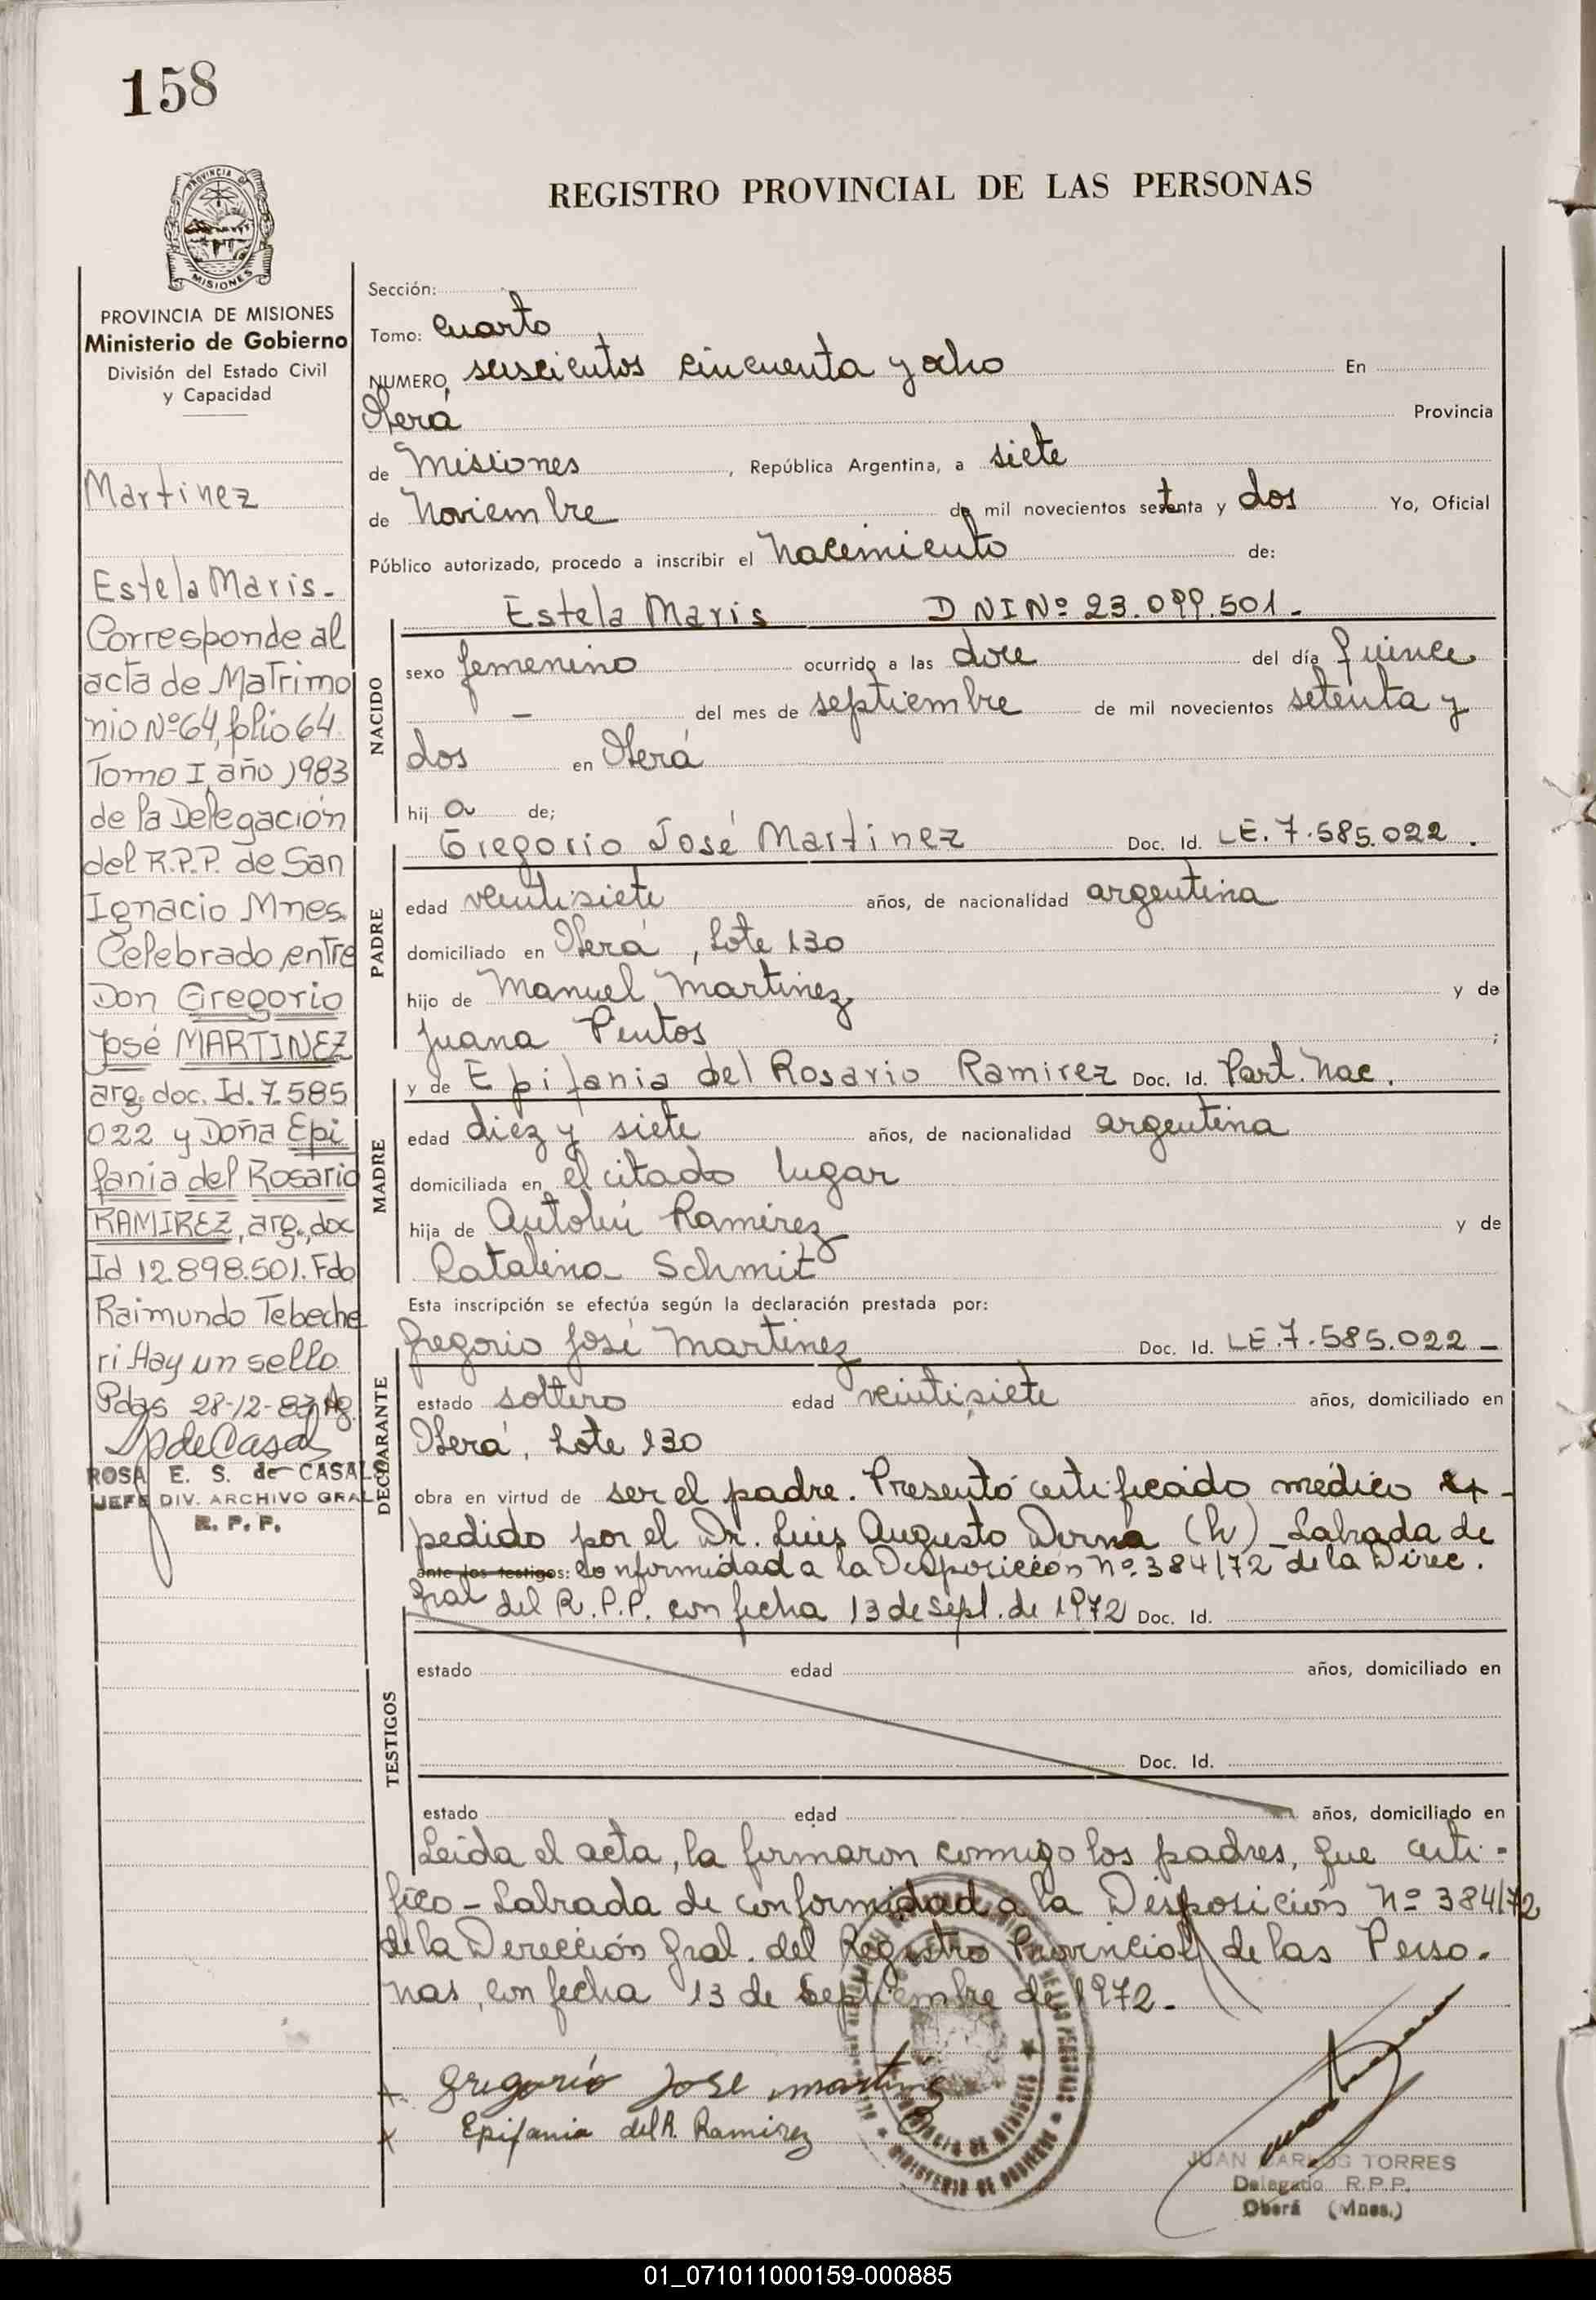 158
PROVINCIA DE
MISIONES
PROVINCIA DE MISIONES
Ministerio de Gobierno
División del Estado Civil
y Capacidad
Martinez
Estela Maris-
Corresponde al
acta de Matrimo
nio Nº 64, folio 64
Tomo I, año 1983
de la Delegación
del R.P.P. de San
Ignacio Mnes.
Celebrado entre
Don Gregorio
José MARTINEZ
arg. doc. Id. 7.585
022 y Doña Epi
fania del Rosario
RAMIREZ, arg., doc
Id 12.898.501. Fdo
Raimundo Tebeche
ri Hay un sello.
Pdas 28-12-83
ROSA E. S. de CASALS
JEFE DIV. ARCHIVO GRAL
R. P. P.
REGISTRO PROVINCIAL DE LAS PERSONAS
Sección:
Tomo: Cuarto
NUMERO, seiscientos cincuenta y ocho En
Oberá Provincia
de Misiones, República Argentina, a siete
de Noviembre de mil novecientos setenta y dos Yo, Oficial
Público autorizado, procedo a inscribir el Nacimiento de:
NACIDO
Estela Maris DNI Nº 23.099.501-
sexo femenino ocurrido a las doce del día quince
- del mes de septiembre de mil novecientos setenta y
dos en Oberá
hij a de;
PADRE
Gregorio José Martinez Doc. Id. LE. 7.585.022.
edad veintisiete años, de nacionalidad argentina
domiciliado en Oberá, Lote 130
hijo de Manuel Martinez y de
Juana Pintos ;
MADRE
y de Epifania del Rosario Ramirez Doc. Id. Part. Nac.
edad diez y siete años, de nacionalidad argentina
domiciliada en el citado lugar
hija de Antolín Ramirez y de
Catalina Schmit
Esta inscripción se efectúa según la declaración prestada por:
DECLARANTE
Gregorio José Martinez Doc. Id. LE. 7.585.022-
estado soltero edad veintisiete años, domiciliado en
Oberá, Lote 130
obra en virtud de ser el padre. Presentó certificado médico ex-
pedido por el Dr. Luis Augusto Derna (h) - Labrada de
ante dos testigos: conformidad a la Disposición Nº 384/72 de la Direc.
Gral del R.P.P. con fecha 13 de Sept. de 1972 Doc. Id.
TESTIGOS
estado edad años, domiciliado en
Doc. Id.
estado edad años, domiciliado en
Leida el acta, la firmaron conmigo los padres, que certi-
fico - Labrada de conformidad a la Disposición Nº 384/72
de la Dirección Gral. del Registro Provincial de las Perso-
nas, con fecha 13 de Septiembre de 1972-
x Gregorio Jose Martinez
x Epifania del R. Ramirez
PROVINCIA DE MISIONES
MINISTERIO DE GOBIERNO
JUAN CARLOS TORRES
Delegado R.P.P.
Oberá (Mnes.)
01_071011000159-000885